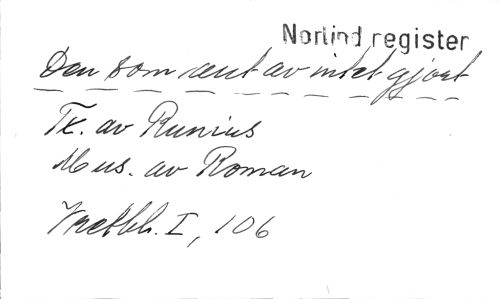 Norlind register
Den som rent av intet gjort
Tx. av Runius
Mus. av Roman
I, 106